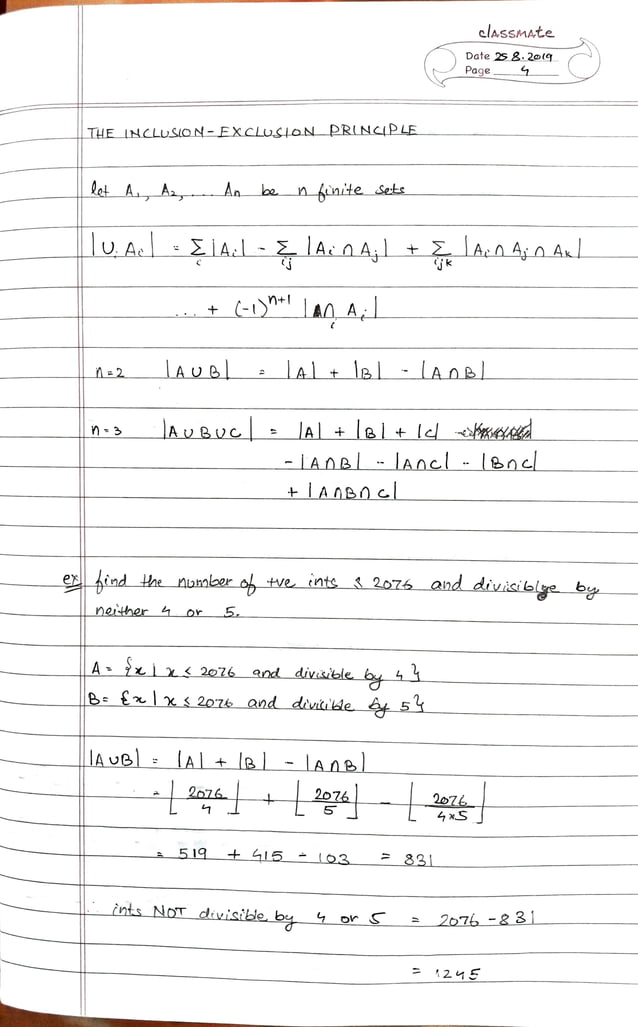 classmate
Date 25.8.2019
Page 4
THE INCLUSION-EXCLUSION PRINCIPLE
let A₁, A₂, ... An be n finite sets
|∪ᵢ Aᵢ| = Σᵢ |Aᵢ| - Σᵢⱼ |Aᵢ ∩ Aⱼ| + Σᵢⱼₖ |Aᵢ ∩ Aⱼ ∩ Aₖ|
... + (-1)ⁿ⁺¹ |∩ᵢ Aᵢ|
n=2 |A∪B| = |A| + |B| - |A∩B|
n=3 |A∪B∪C| = |A| + |B| + |C|
- |A∩B| - |A∩C| - |B∩C|
+ |A∩B∩C|
ex find the number of +ve ints ≤ 2076 and divisible by
neither 4 or 5.
A = {x | x ≤ 2076 and divisible by 4}
B = {x | x ≤ 2076 and divisible by 5}
|A∪B| = |A| + |B| - |A∩B|
= ⌊2076/4⌋ + ⌊2076/5⌋ - ⌊2076/4×5⌋
= 519 + 415 - 103 = 831
∴ ints NOT divisible by 4 or 5 = 2076 - 831
= 1245